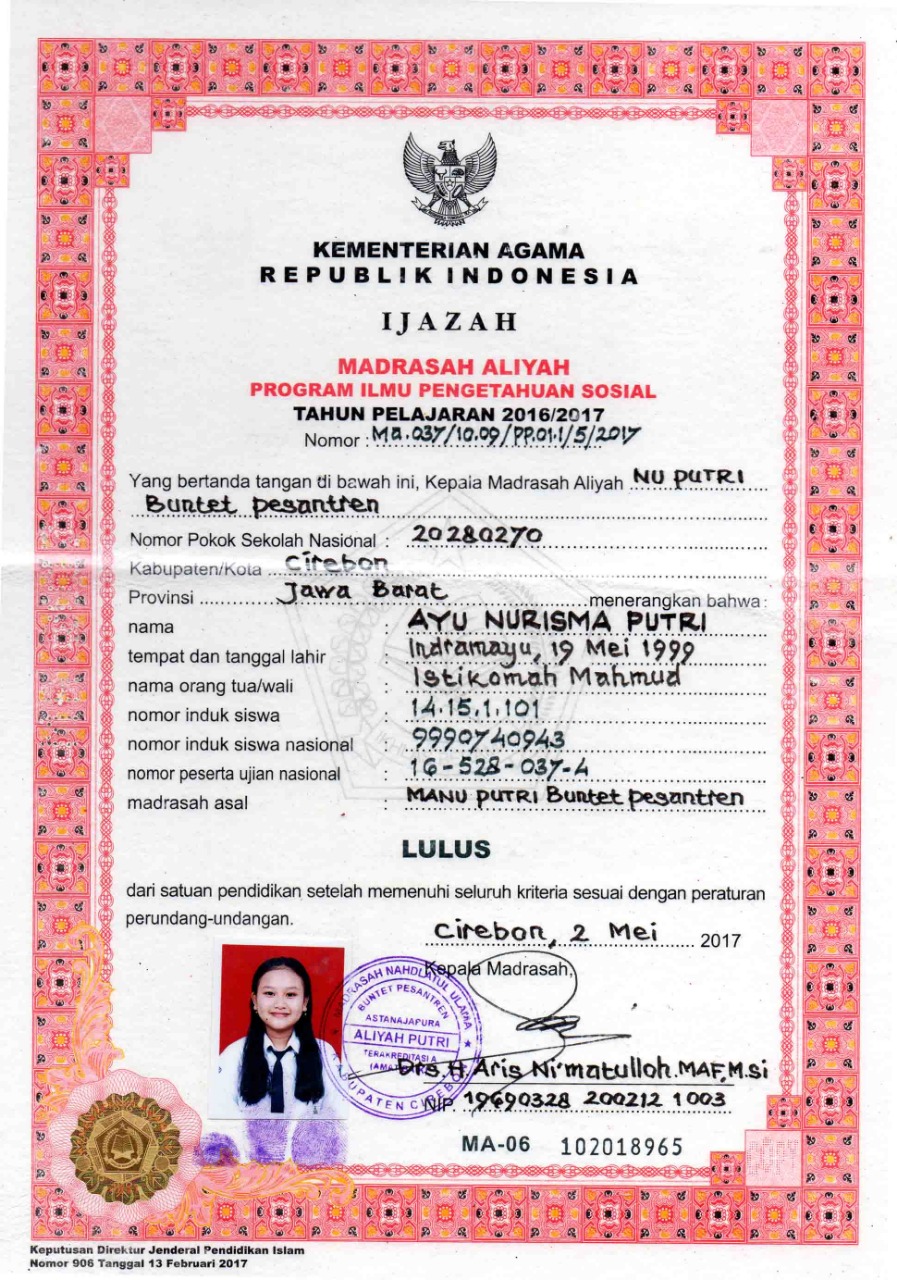 KEMENTERIAN AGAMA
REPUBLIK INDONESIA
IJAZAH
MADRASAH ALIYAH
PROGRAM ILMU PENGETAHUAN SOSIAL
TAHUN PELAJARAN 2016/2017
Nomor : Ma.037/10.09/PP.01.1/5/2017
Yang bertanda tangan di bawah ini, Kepala Madrasah Aliyah NU PUTRI
Buntet pesantren
Nomor Pokok Sekolah Nasional : 20280270
Kabupaten/Kota Cirebon
Provinsi Jawa Barat menerangkan bahwa :
nama : AYU NURISMA PUTRI
tempat dan tanggal lahir : Indramayu, 19 Mei 1999
nama orang tua/wali : Istikomah Mahmud
nomor induk siswa : 14.15.1.101
nomor induk siswa nasional : 9990740943
nomor peserta ujian nasional : 16-528-037-4
madrasah asal : MANU PUTRI Buntet pesantren
LULUS
dari satuan pendidikan setelah memenuhi seluruh kriteria sesuai dengan peraturan
perundang-undangan.
Cirebon, 2 Mei 2017
Kepala Madrasah,
MADRASAH NAHDLATUL ULAMA
BUNTET PESANTREN
ASTANAJAPURA
ALIYAH PUTRI
TERAKREDITASI A
KABUPATEN CIREBON
Drs. H. Aris Ni'matulloh.MAF,M.si
NIP. 19690328 200212 1 003
MA-06 102018965
Keputusan Direktur Jenderal Pendidikan Islam
Nomor 906 Tanggal 13 Februari 2017